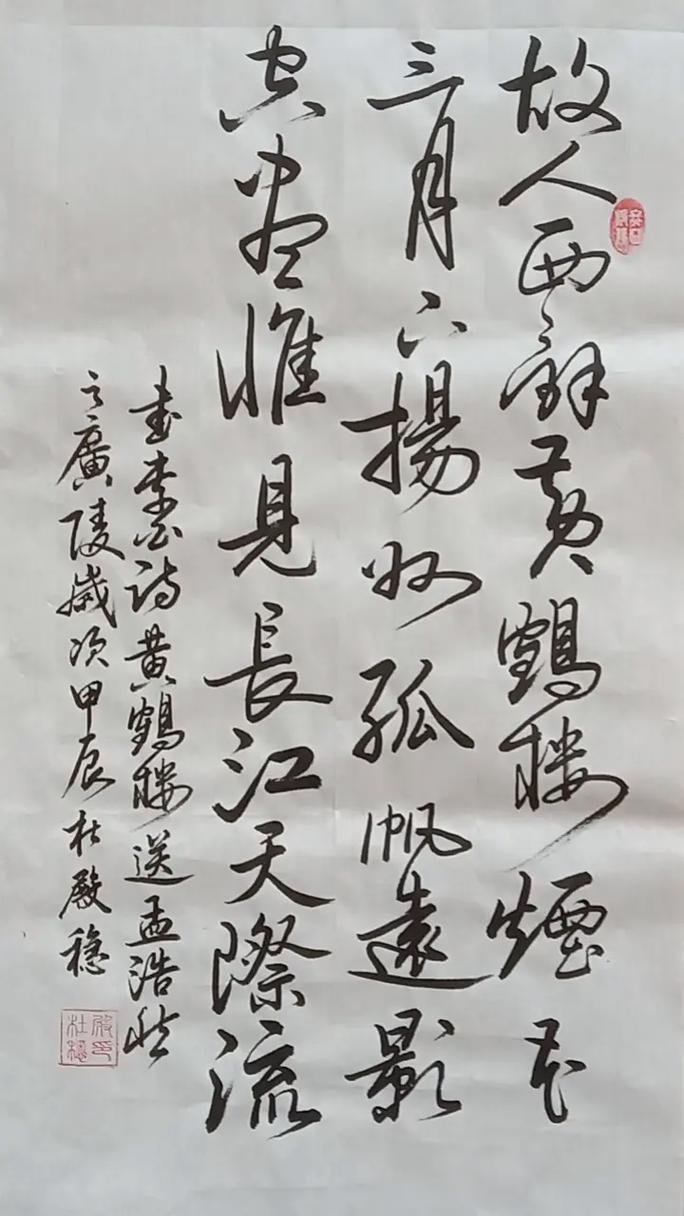 故人西辭黄鶴樓煙花
三月下揚州孤帆遠影
空盡惟見長江天際流
書李白詩黄鶴樓送孟浩然
之廣陵歲次甲辰杜殿穩